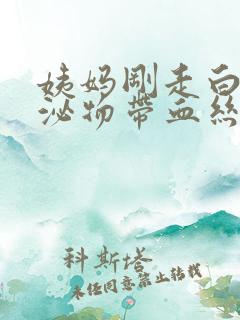 姨妈剛走白
泌物帶血絲
科斯塔
未經同意禁止转载